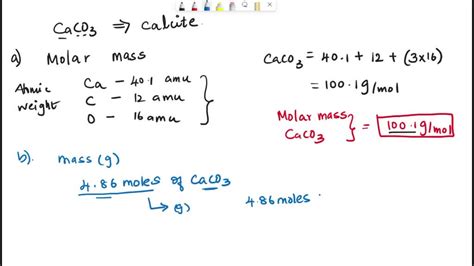 CaCO3 ⇒ calcite.
a) Molar mass
Atomic weight
Ca – 40.1 amu
C – 12 amu
O – 16 amu
CaCO3 = 40.1 + 12 + (3×16)
= 100.1 g/mol
Molar mass CaCO3 } = 100.1 g/mol
b). mass (g)
4.86 moles of CaCO3
↳ g)
4.86 moles